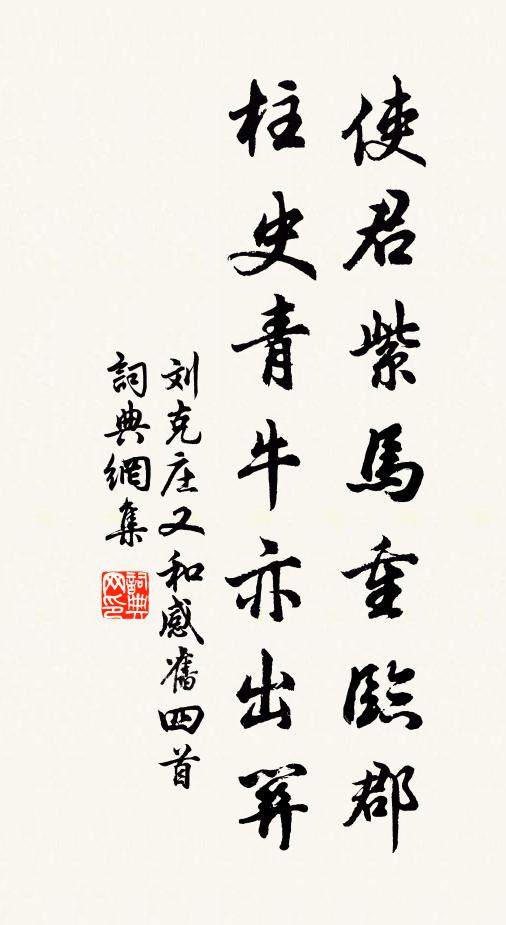 使君紫馬重臨郡
柱史青牛亦出關
刘克庄又和感舊四首
詞典網集
詞典
网印